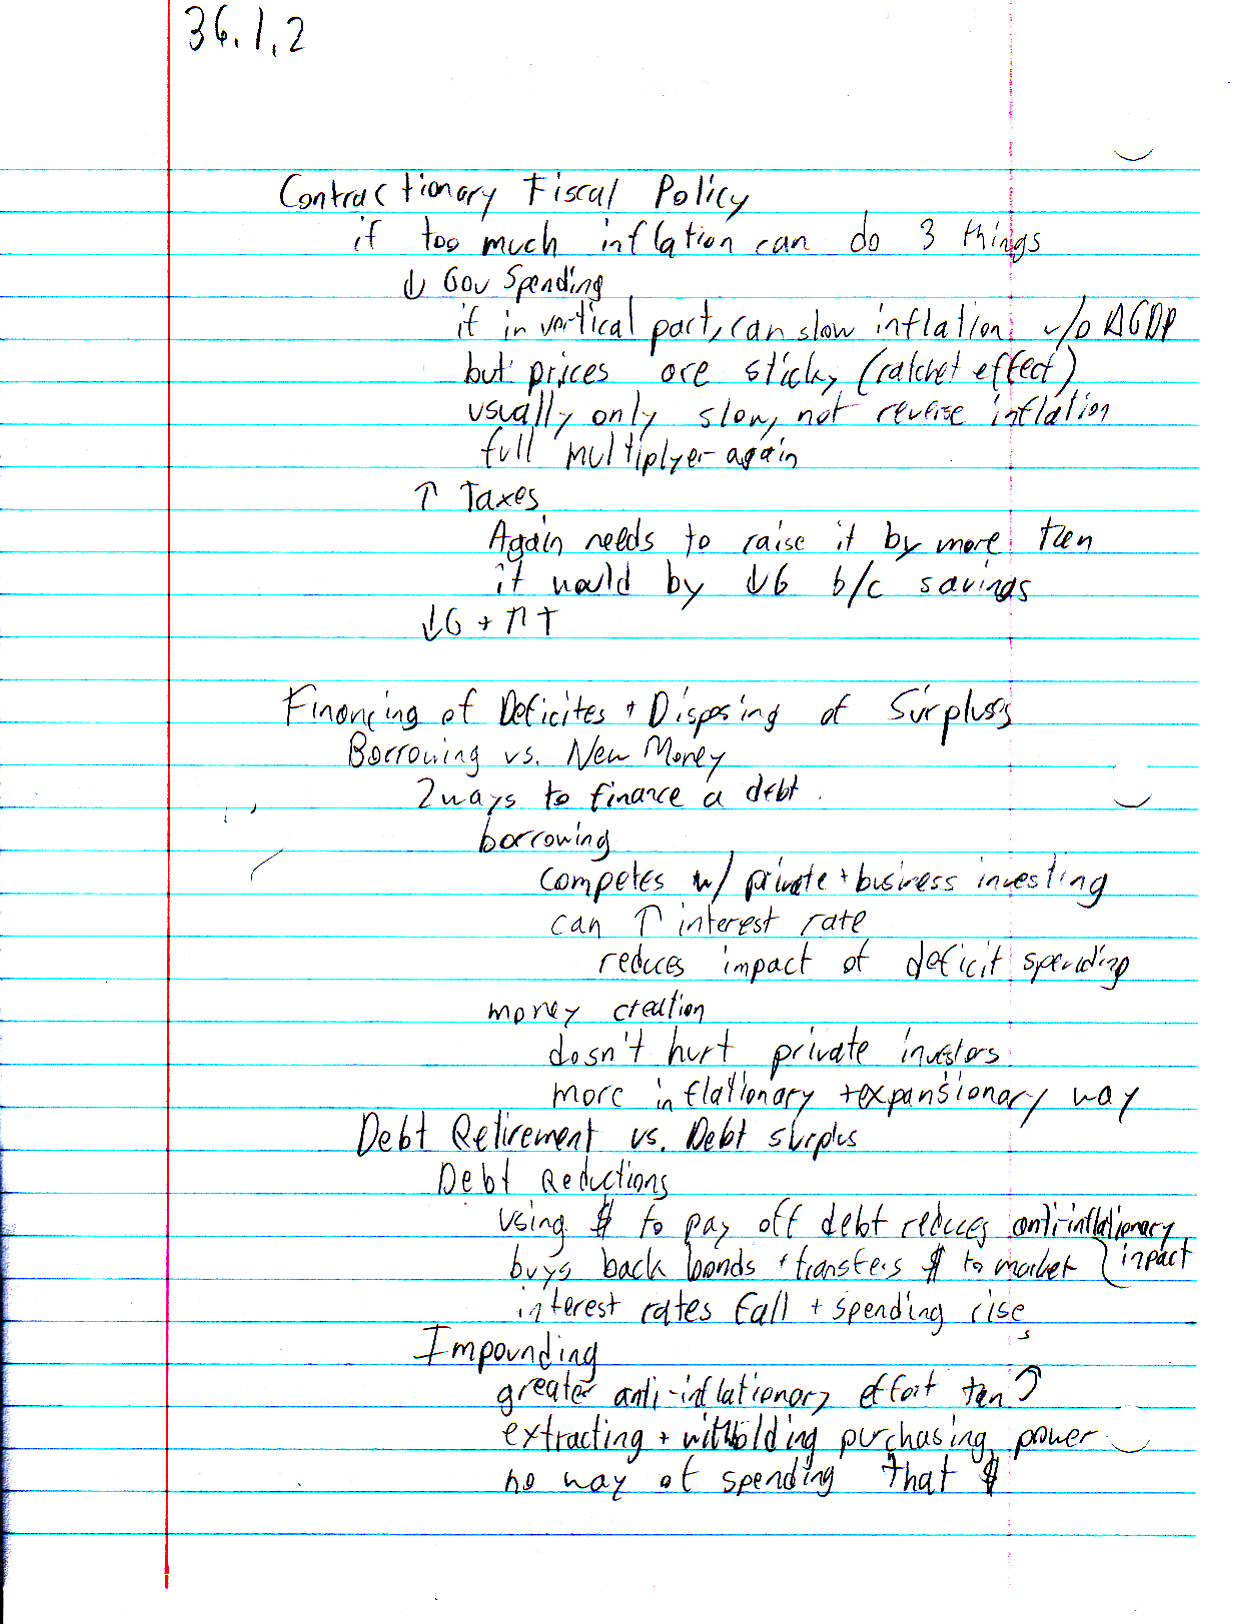 36.1.2
Contractionary Fiscal Policy
if too much inflation can do 3 things
↓ Gov Spending
if in vertical part, can slow inflation w/o ΔGDP
but prices are sticky (ratchet effect)
usually only slow, not reverse inflation
full multiplyer again
↑ Taxes
Again needs to raise it by more then
it would by ↓G b/c savings
↓G + ↑T
Financing of Deficites + Disposing of Surpluss
Borrowing vs. New Money
2 ways to finance a debt.
borrowing
competes w/ private + business investing
can ↑ interest rate
reduces impact of deficit spending
money creation
dosn't hurt private investors
more inflationary + expansionary way
Debt Retirement vs. Debt surplus
Debt Reductions
using $ to pay off debt reduces anti-inflationary
buys back bonds + transfers $ to market } inpact
interest rates fall + spending rise
Impounding
greater anti-inflationary effort ten ↑
extracting + witholding purchasing power
no way of spending that $